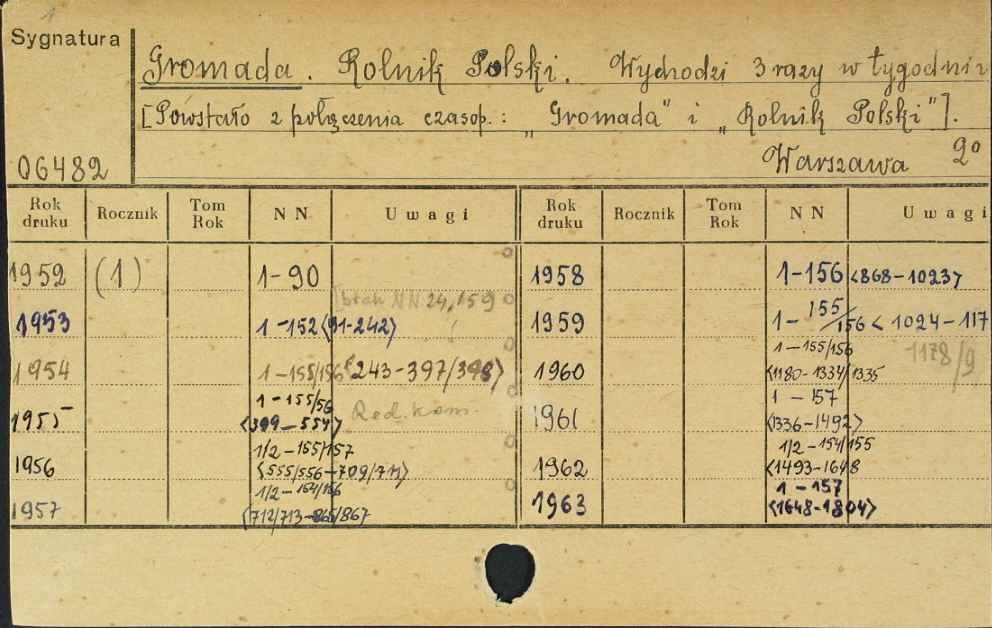 Sygnatura
Gromada. Rolnik Polski. Wychodzi 3 razy w tygodniu
[Powstało z połączenia czasop.: „Gromada" i „Rolnik Polski"].
06482
Warszawa 2°
Rok druku Rocznik Tom Rok NN Uwagi Rok druku Rocznik Tom Rok NN Uwagi
1952 (1) 1-90
1958 1-156 <868-1023>
brak NN 24, 159
1953 1-152 <91-242>
1959 1-155/156 <1024-117
1178/9
1954 1-155/156 <243-397/398>
1960 1-155/156 <1180-1334/1335
1955 1-155/56 <399-554> Red. kom.
1961 1-157 <1336-1492>
1956 1/2-155/157 <555/556-709/711>
1962 1/2-154/155 <1493-1648
1957 1/2-154/156 <712/713-865/867
1963 1-157 <1648-1804>